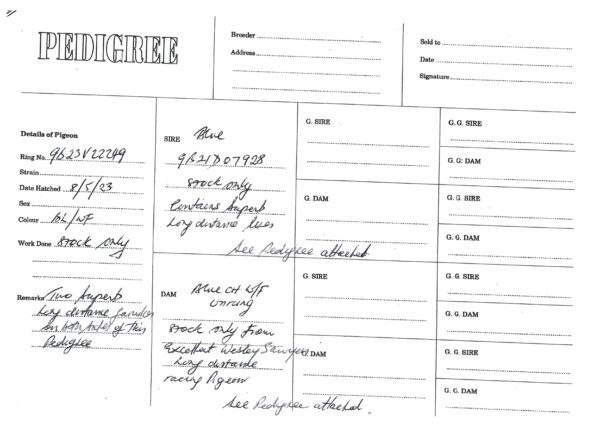 PEDIGREE
Breeder
Address
Sold to
Date
Signature
Details of Pigeon
Ring No. GB23V22249
Strain
Date Hatched 8/5/23
Sex
Colour BL/WF
Work Done Stock only
Remarks Two superb
Long distance families
on both sides of this
Pedigree
SIRE Blue
GB21D07928
Stock only
Contains superb
Long distance lines
See Pedigree attached
DAM Blue CH W/F
unrung
Stock only from
Excellent Wesley Sawyers
Long distance
racing Pigeon
See Pedigree attached.
G. SIRE
G. DAM
G. SIRE
G. DAM
G. G. SIRE
G. G. DAM
G. G. SIRE
G. G. DAM
G. G. SIRE
G. G. DAM
G. G. SIRE
G. G. DAM